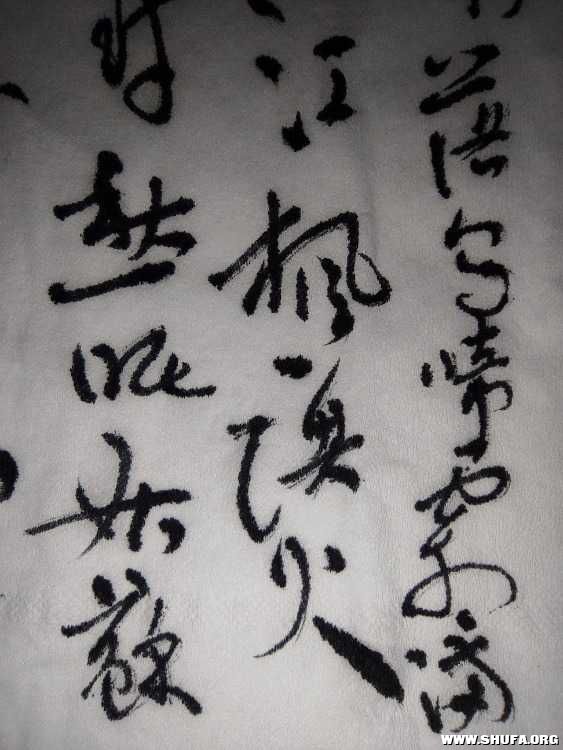 落烏啼霜滿
江楓漁火
對愁眠姑蘇
WWW.SHUFA.ORG